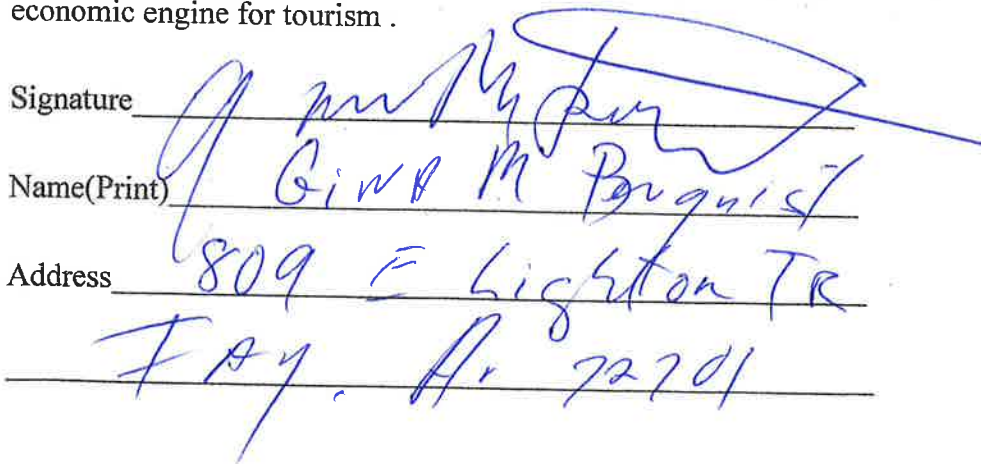 economic engine for tourism .
Signature
Name(Print) GiNA M Bergquist
Address 809 E Lighton TR
FAY. Ar 72701